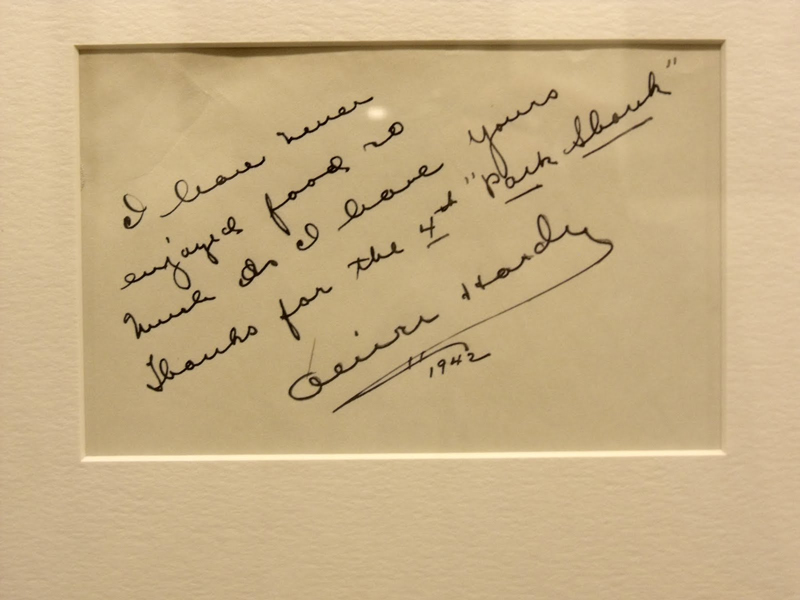 I have never
enjoyed food so
much as I have yours
Thanks for the 4th "Pork Shank"
Oliver Hardy
1942